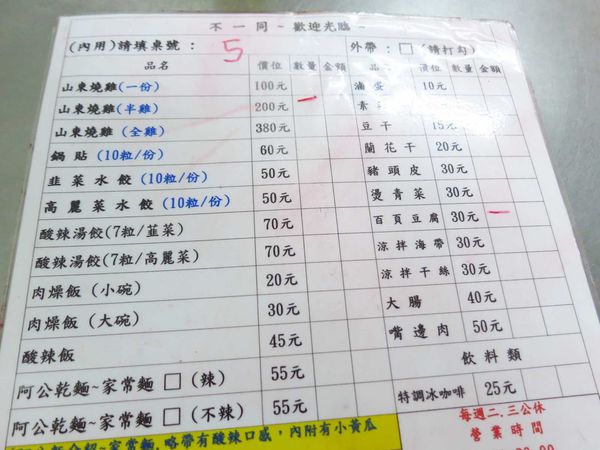 不一同~歡迎光臨~
(內用)請填桌號: 5 外帶: □ (請打勾)
品名 價位 數量 金額 品 價位 數量 金額
山東燒雞(一份) 100元 滷蛋 10元
山東燒雞(半雞) 200元 一 素
山東燒雞(全雞) 380元 豆干 15元
鍋貼(10粒/份) 60元 蘭花干 20元
韭菜水餃(10粒/份) 50元 豬頭皮 30元
高麗菜水餃(10粒/份) 50元 燙青菜 30元
酸辣湯餃(7粒/韮菜) 70元 百頁豆腐 30元 一
酸辣湯餃(7粒/高麗菜) 70元 涼拌海帶 30元
肉燥飯(小碗) 20元 涼拌干絲 30元
肉燥飯(大碗) 30元 大腸 40元
酸辣飯 45元 嘴邊肉 50元
阿公乾麵~家常麵 □ (辣) 55元 飲料類
阿公乾麵~家常麵 □ (不辣) 55元 特調冰咖啡 25元
家常麵.略帶有酸辣口感,內附有小黃瓜
每週二.三公休
營業時間